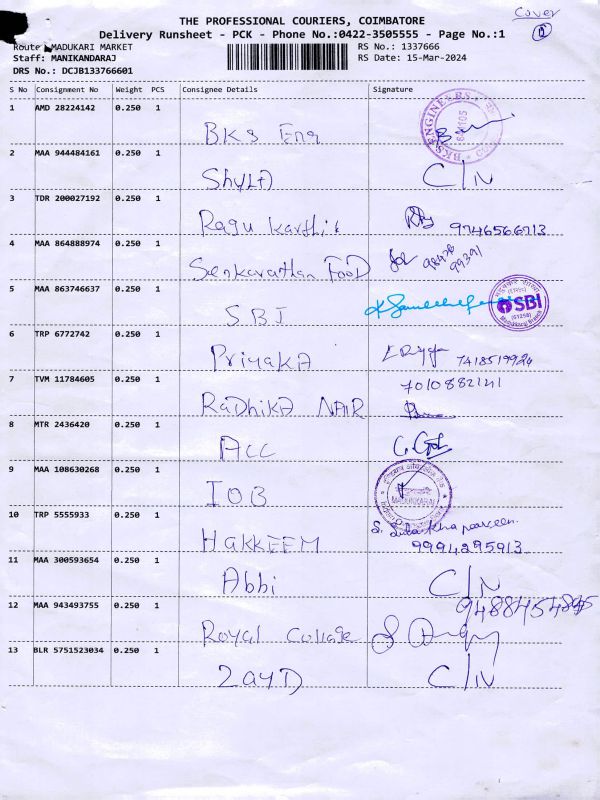 Cover
1
THE PROFESSIONAL COURIERS, COIMBATORE
Delivery Runsheet - PCK - Phone No.:0422-3505555 - Page No.:1
Route : MADUKARI MARKET
RS No.: 1337666
Staff: MANIKANDARAJ
RS Date: 15-Mar-2024
DRS No.: DCJB133766601
S No Consignment No Weight PCS Consignee Details Signature
1 AMD 28224142 0.250 1
BKS Eng
BKS ENGINEERS 641105
2 MAA 944484161 0.250 1
Shyla C/N
3 TDR 200027192 0.250 1
Ragu Karthik 9746566713
4 MAA 864888974 0.250 1
Senkarathan Food 98428 99391
5 MAA 863746637 0.250 1
SBI
SBI
6 TRP 6772742 0.250 1
PriyakA 7418519924
7 TVM 11784605 0.250 1
7010882121
RaDhikA NAIR
8 MTR 2436420 0.250 1
ACC
9 MAA 108630268 0.250 1
IOB
MADUKKARAI
10 TRP 5555933 0.250 1
HAKKEEM 9994295913
11 MAA 300593654 0.250 1
Abbi C/N
12 MAA 943493755 0.250 1
Royal College
13 BLR 5751523034 0.250 1
ZayD C/N